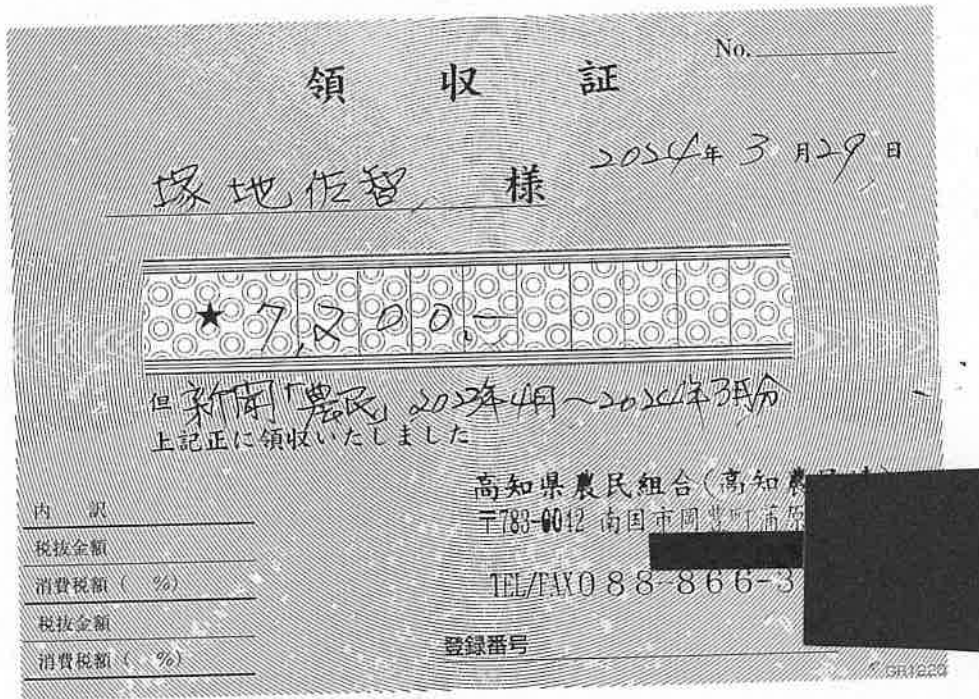 No.
領収証
2024年3月29日
塚地佐智 様
★ 7,200.-
但 新聞「農民」2023年4月～2024年3月分
上記正に領収いたしました
高知県農民組合(高知農民
〒783-0012 南国市岡豊町蒲原
TEL/FAX 088-866-3
内訳
税抜金額
消費税額( %)
税抜金額
消費税額( %)
登録番号